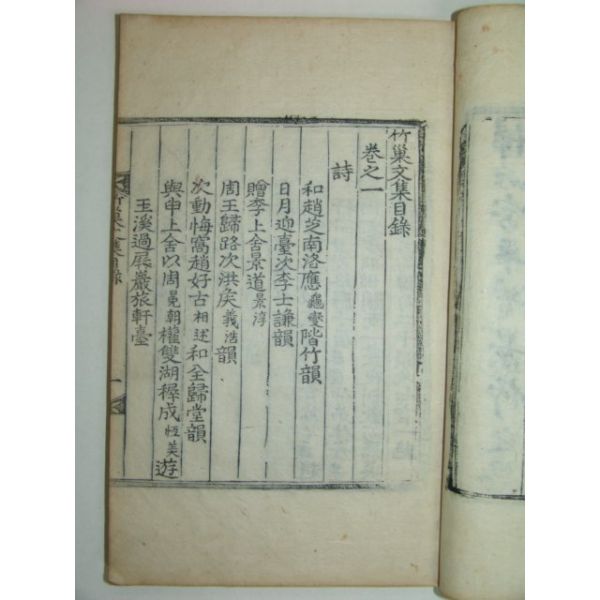 竹巢文集目錄
卷之一
詩
和趙芝南洛應龜燮階竹韻
日月迎臺次李士謙韻
贈李上舍景道景淳
周王歸路次洪矦義浩韻
次動悔窩趙好古相述和全歸堂韻
與申上舍以周冕朝權雙湖穉成恒美遊
玉溪過屛巖旅軒臺
竹巢文集目錄 一